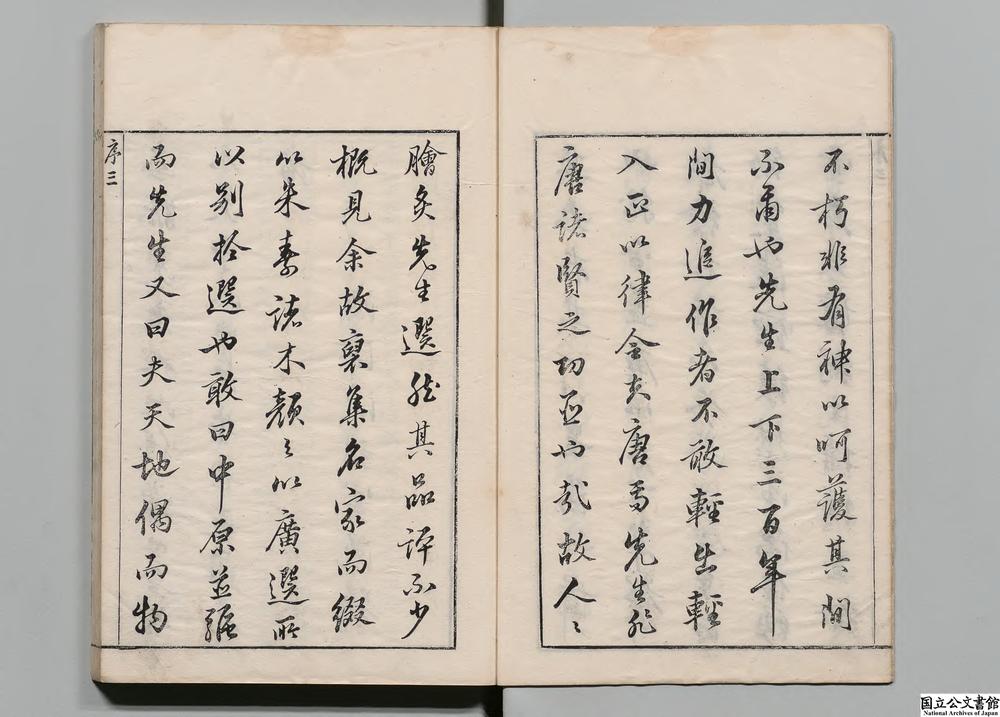 不朽非有神以呵護其間
不爾也先生上下三百年
間力追作者不敢輕出輕
入正以律令矣唐焉先生非
唐諸賢之功臣也哉故人〻
膾炙先生選然其品評不少
概見余故裒集名家而綴
以朱素諸木顏之以廣選所
以別於選也敢曰中原並驅
而先生又曰夫天地偶而物
序三
国立公文書館
National Archives of Japan